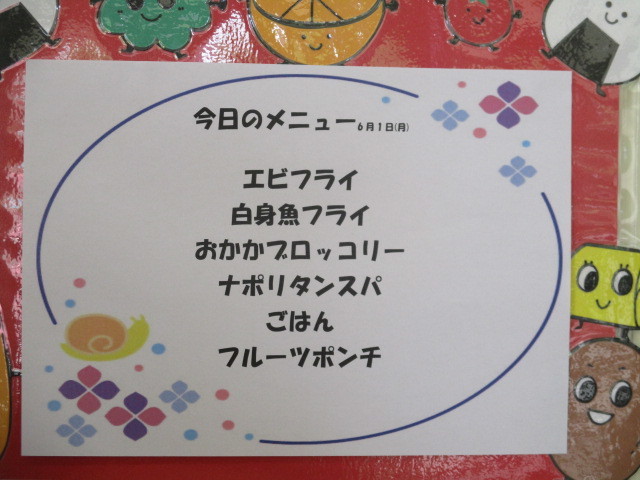 今日のメニュー6月1日(月)
エビフライ
白身魚フライ
おかかブロッコリー
ナポリタンスパ
ごはん
フルーツポンチ